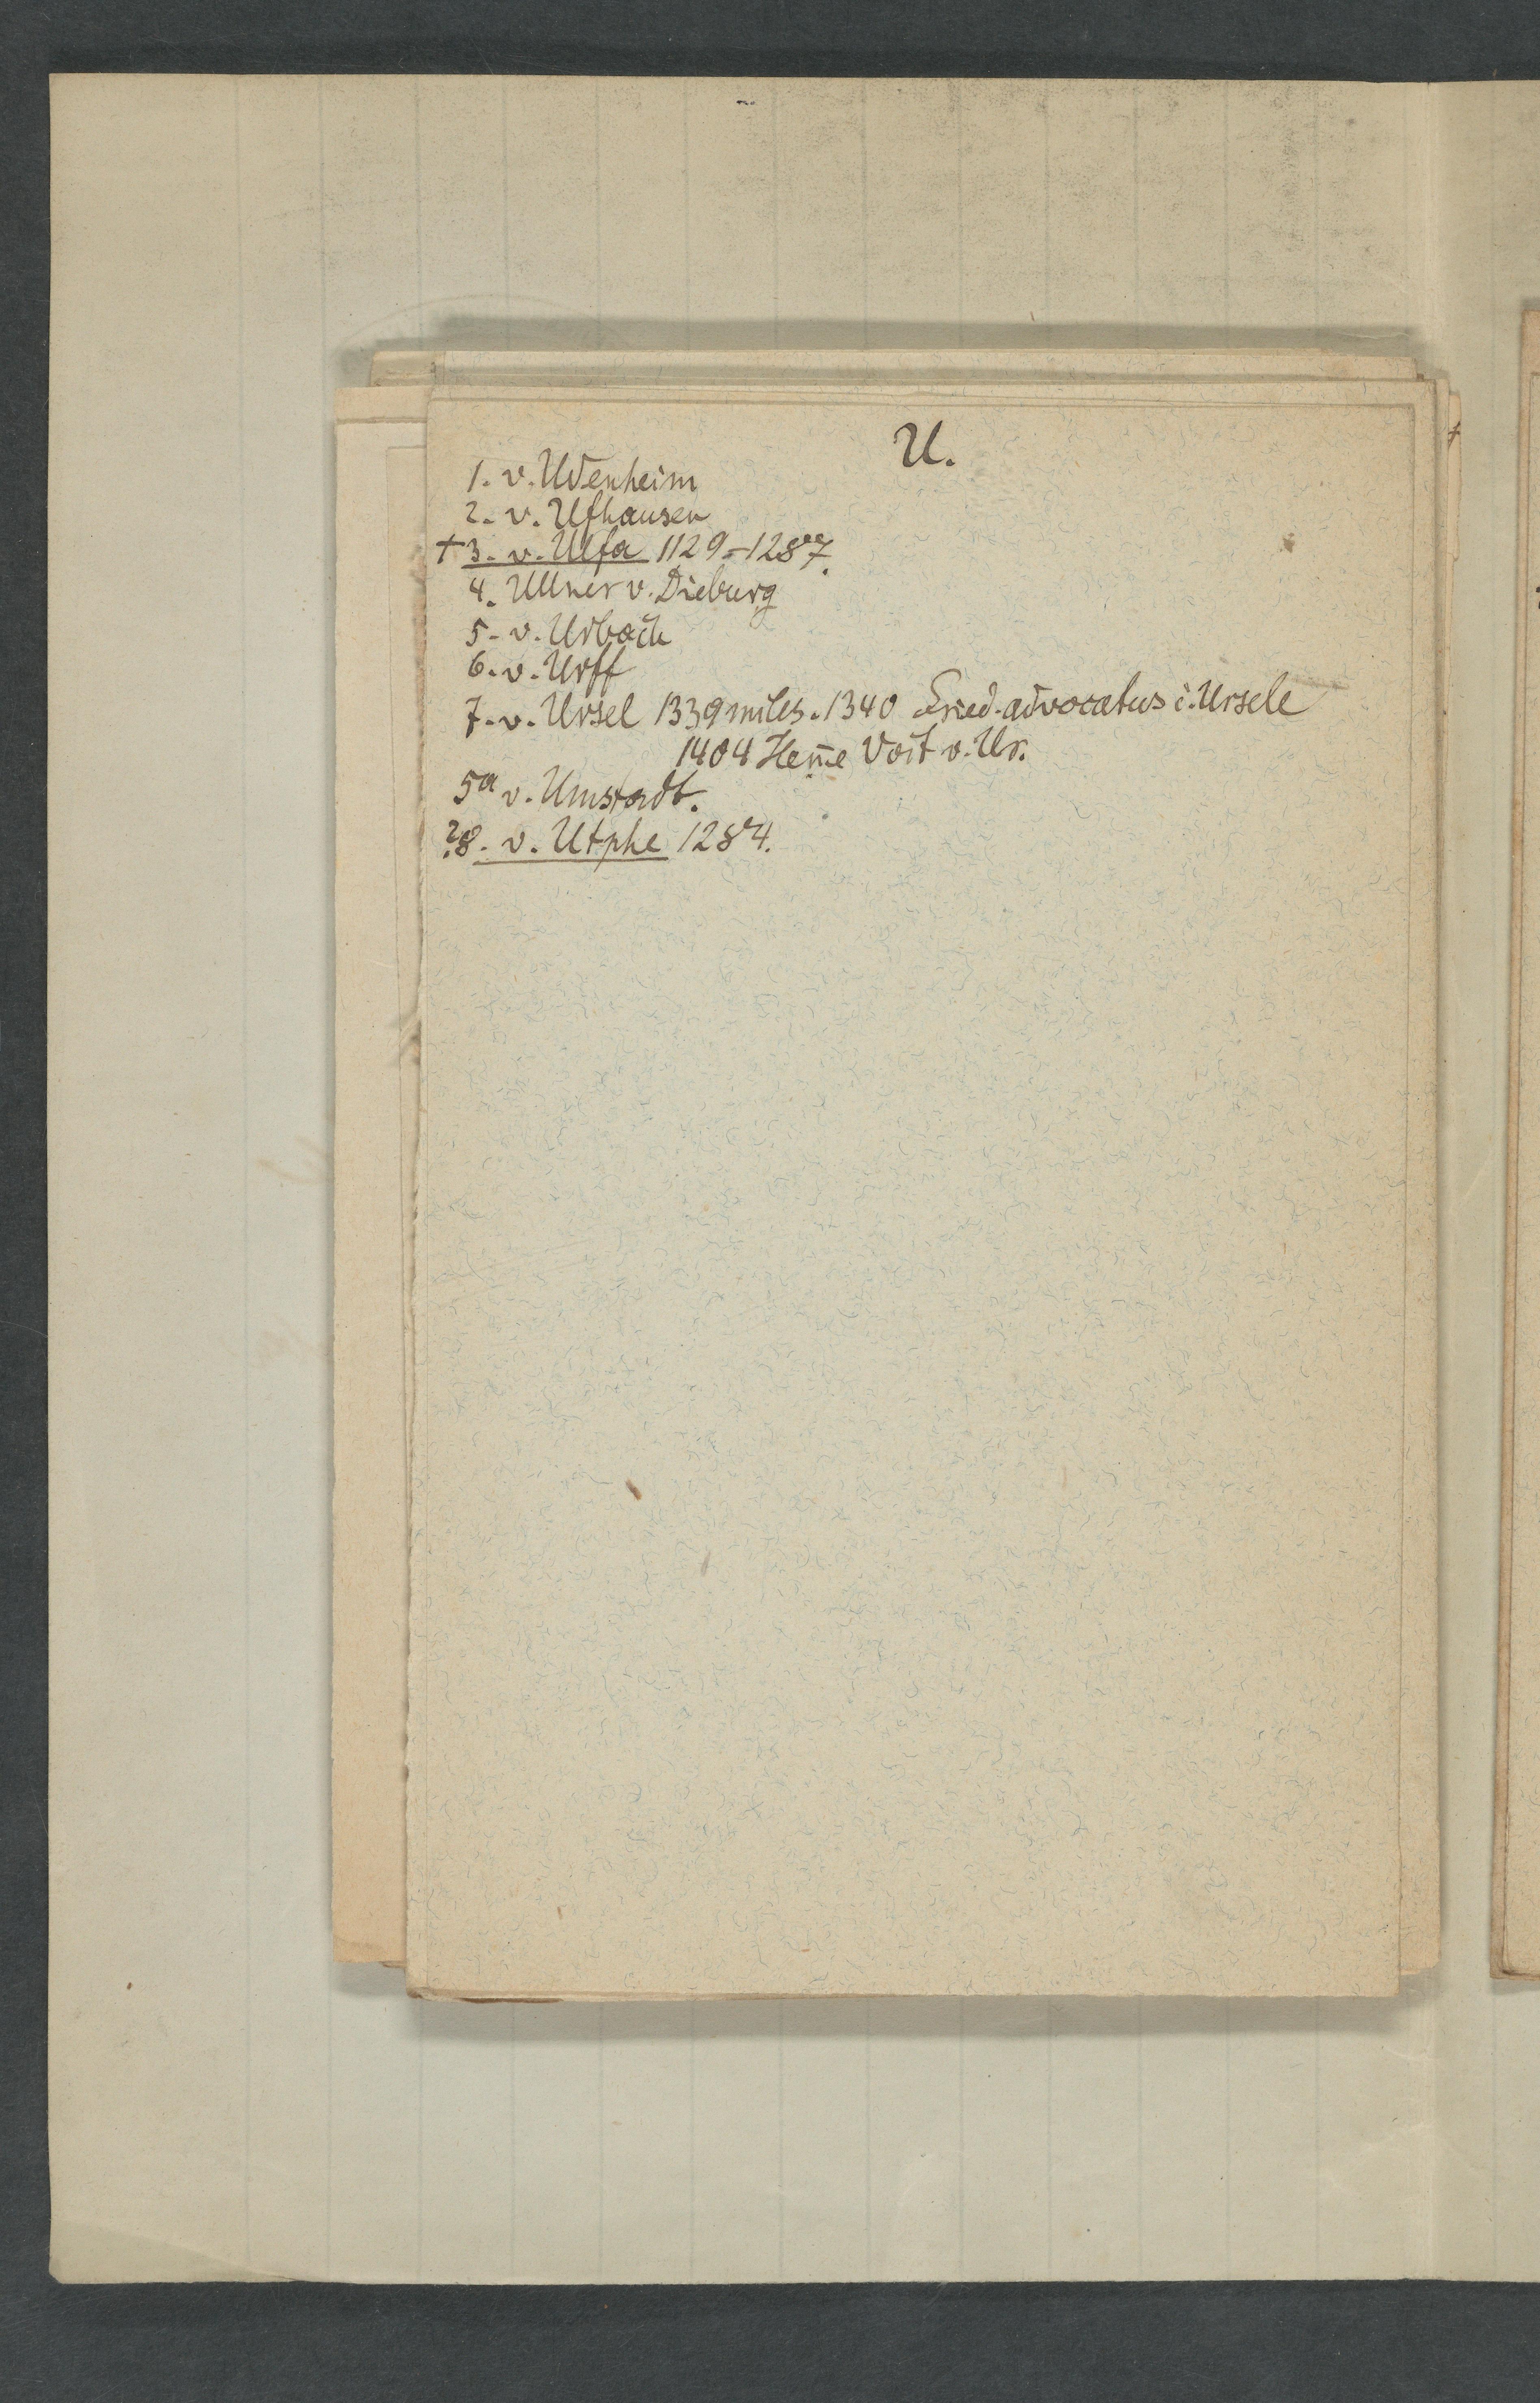 U.
1. v. Udenheim
2. v. Ufhausen
+ 3. v. Ulfa 1129-1287.
4. Ullner v. Dieburg
5. v. Urbach
6. v. Urff
7. v. Ursel 1339 miles. 1340 Fried. advocatus i. Ursele
1404 Hem̄e Voit v. Ur.
5a v. Umstadt.
? 8. v. Utphe 1284.